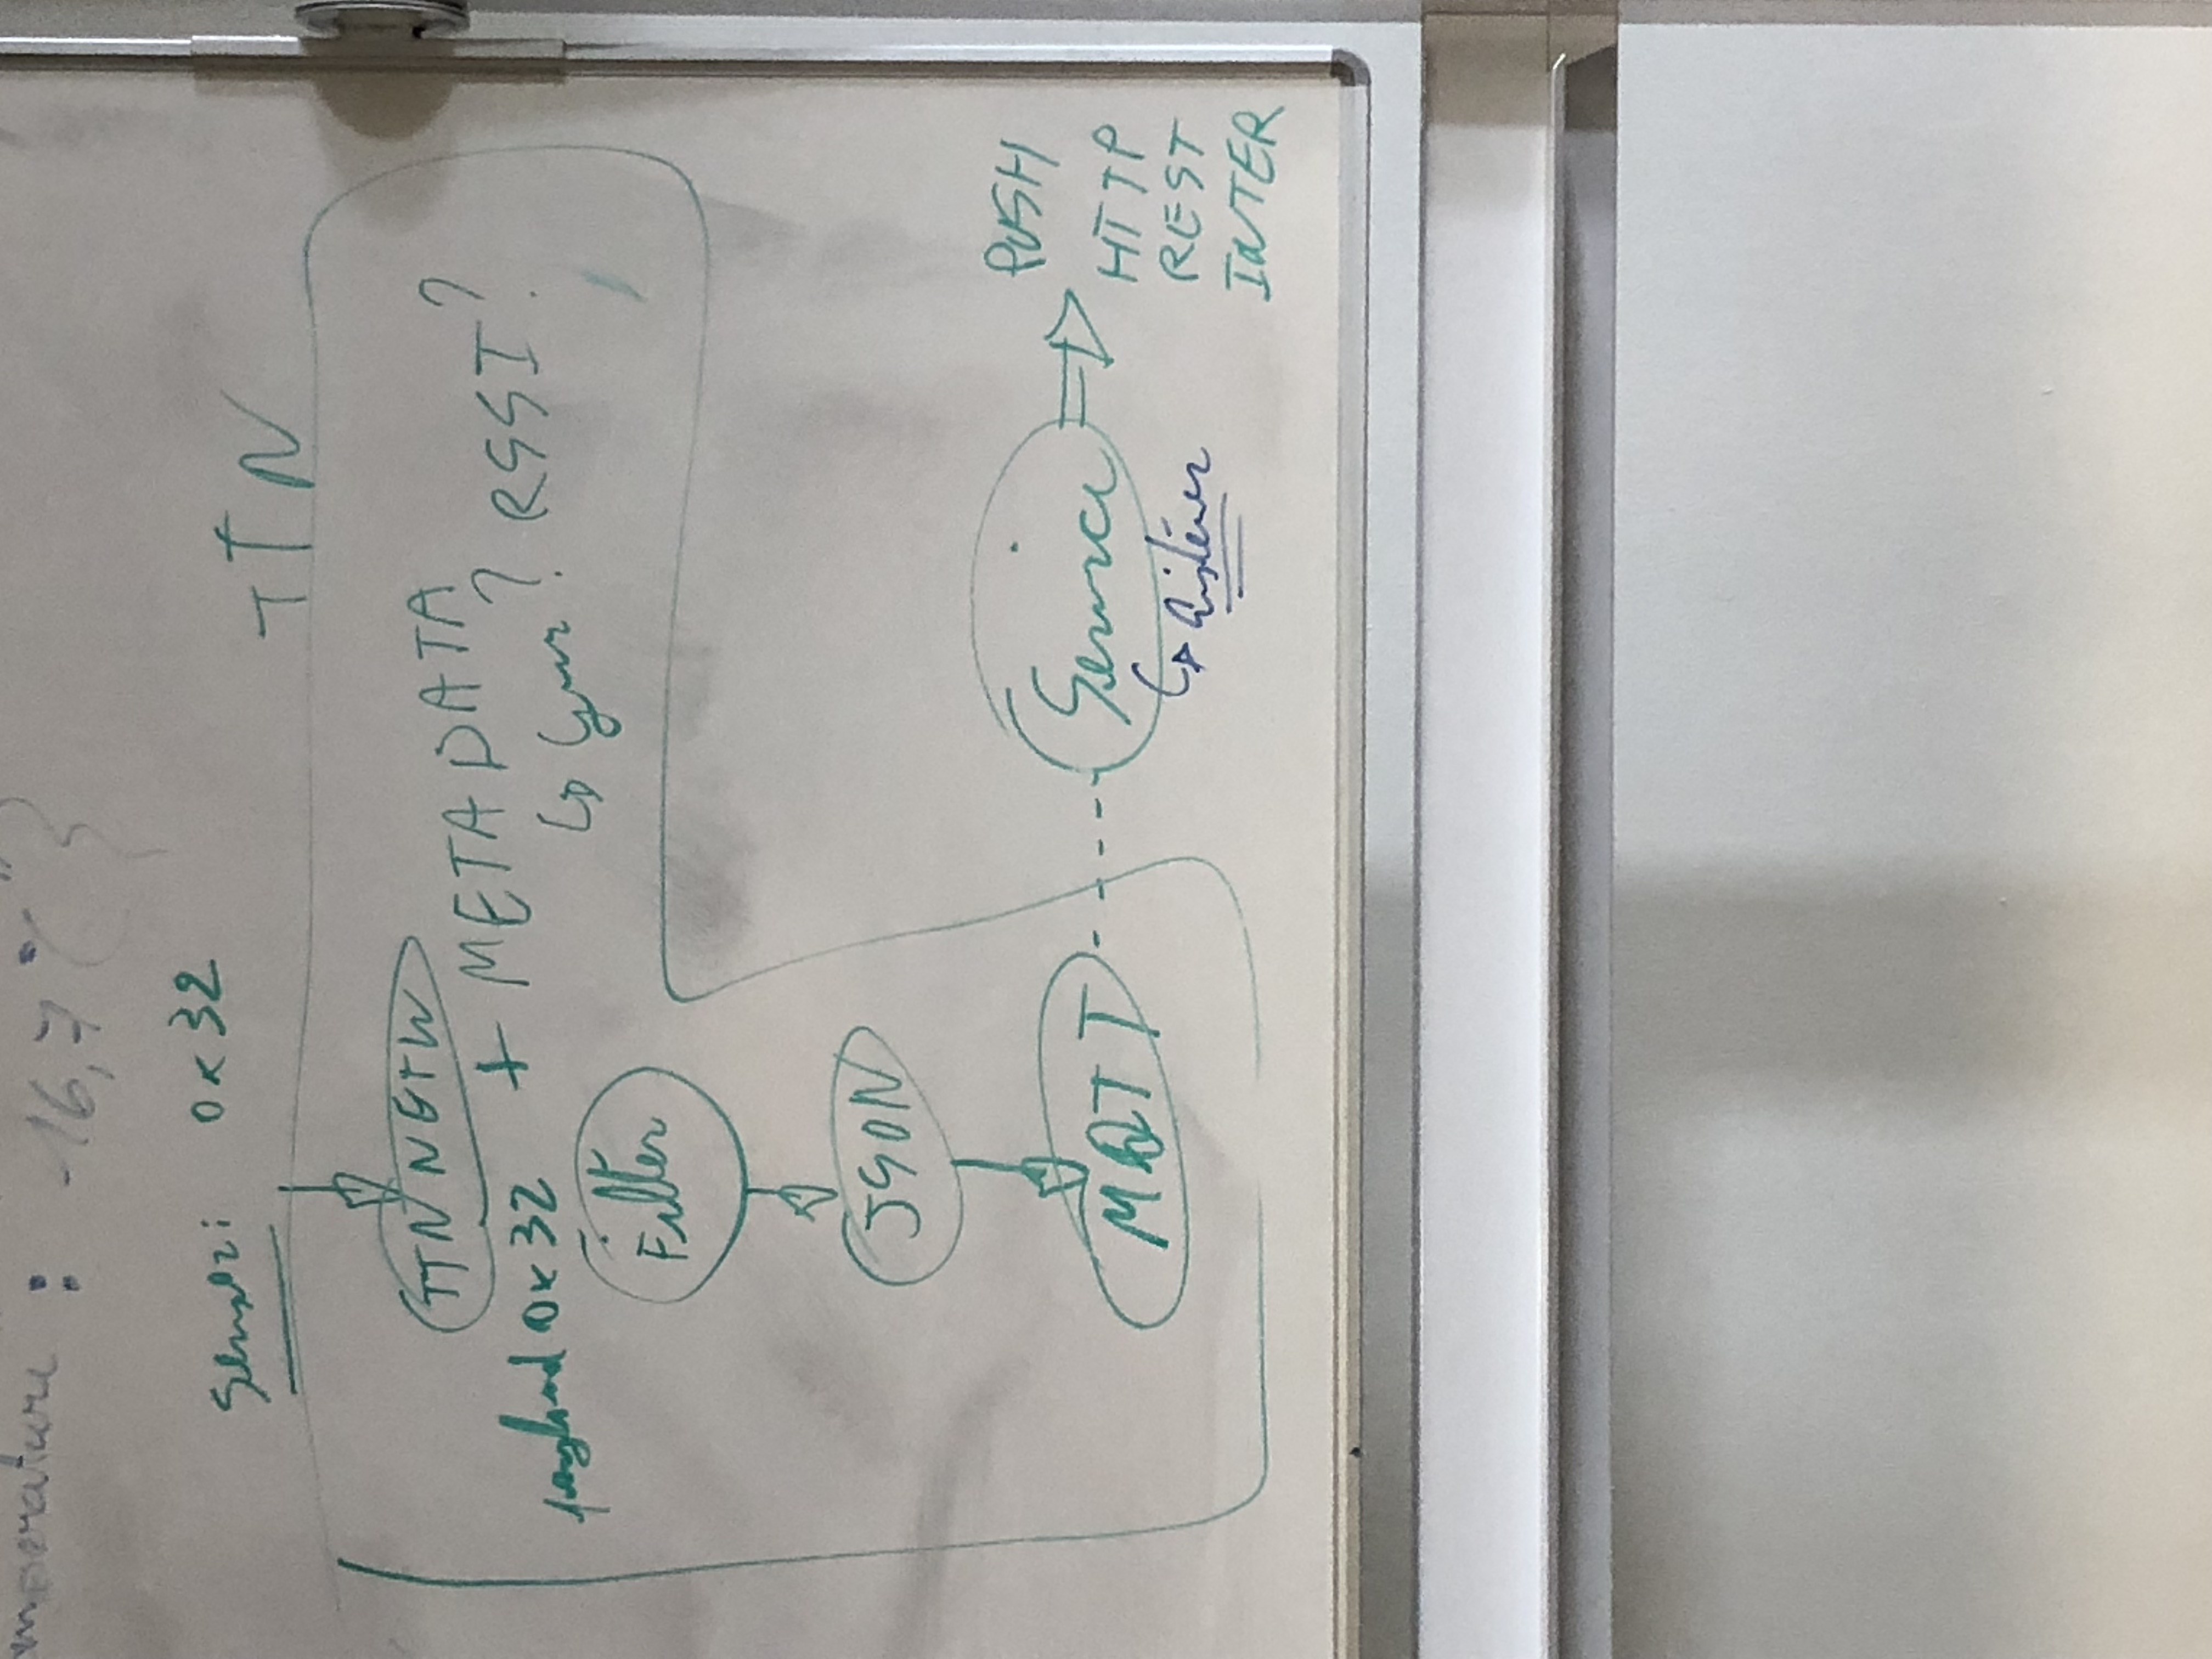 mperature : -16,7°C"}
Sensor: 0x32
TTN
TTN NETW
+ METADATA
payload 0x32
? RSSI?
Filter
JSON
MQTT
Service
↳ listener
PUSH
HTTP
REST
INTER